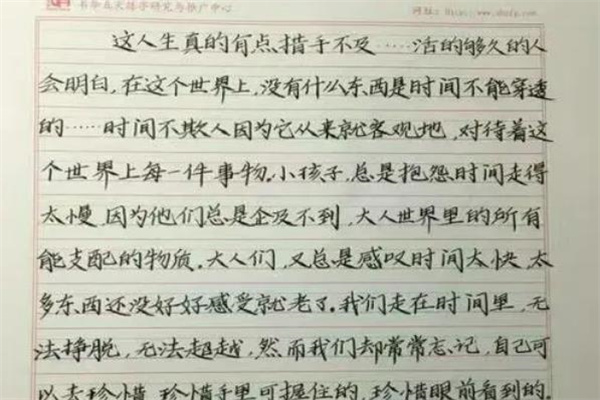 书和天练字研究与推广中心
这人生真的有点措手不及……活的够久的人
会明白,在这个世界上,没有什么东西是时间不能穿透
的……时间不欺人因为它从来就客观地,对待着这
个世界上每一件事物。小孩子,总是抱怨时间走得
太慢,因为他们总是企及不到,大人世界里的所有
能支配的物质。大人们,又总是感叹时间太快,太
多东西还没好好感受就老了。我们走在时间里,无
法挣脱,无法超越,然而我们却常常忘记,自己可
以去珍惜,珍惜手里可握住的,珍惜眼前看到的。